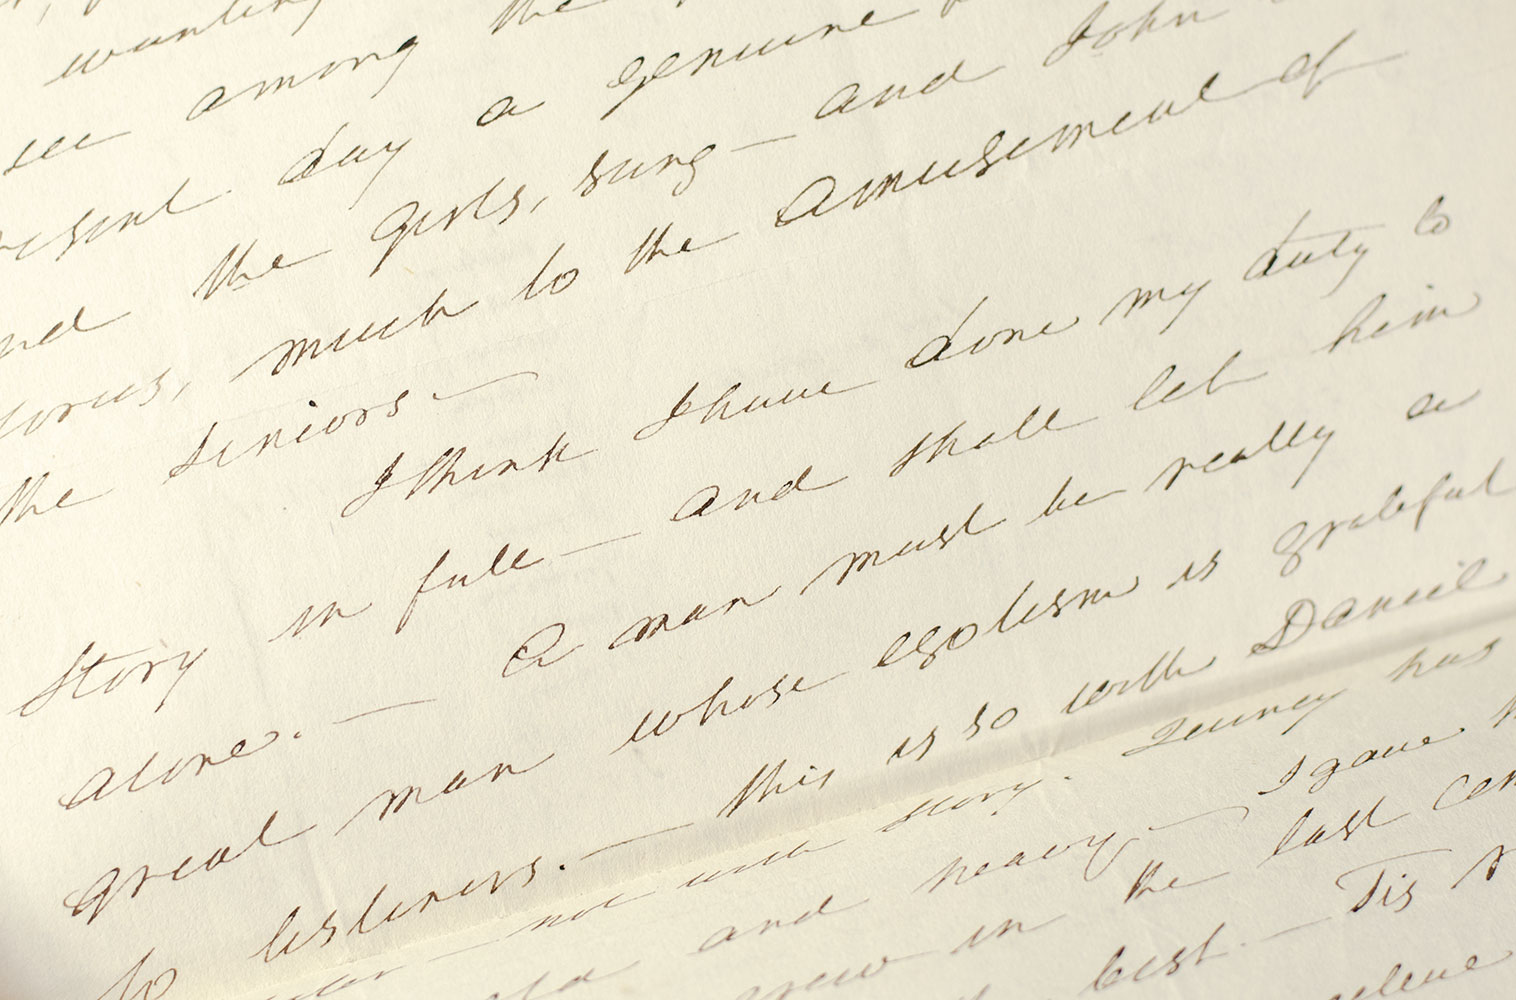 wanting
see among the
resent day a genuine
nd the girls, sung — and John
orus, much to the amusement of
the seniors. —
I think I have done my duty to
Story in full — and shall let him
alone. — A man must be really a
great man whose egotism is grateful
to listeners. — this is so with Daniel
not with Story. Quincy has
and heavy — I gave
in the last cen
best — Tis